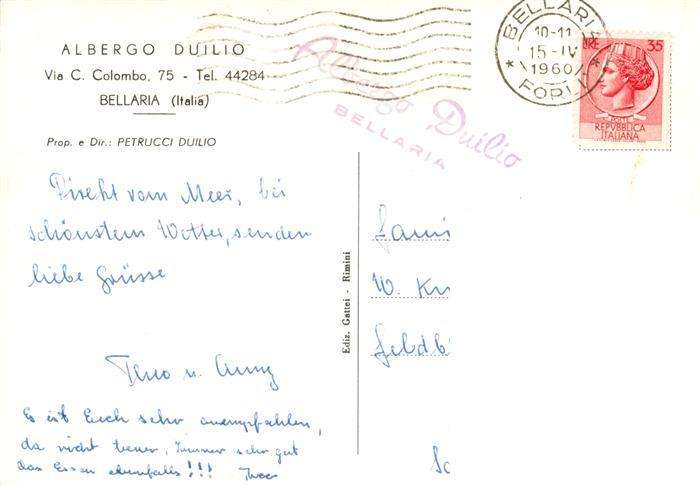 ALBERGO DUILIO
Via C. Colombo, 75 - Tel. 44284
BELLARIA (Italia)
Prop. e Dir.: PETRUCCI DUILIO
Albergo Duilio
BELLARIA
BELLARIA
10-11
15-IV
1960
* FORLI *
LIRE 35
REPVBBLICA
ITALIANA
Direkt vom Meer, bei
schönstem Wetter, senden
liebe Grüsse
u.
Es ist Euch sehr anempfehlen,
da nicht teuer, Immer sehr gut
das Essen ebenfalls!!!
Ediz. Gattei - Rimini
W.